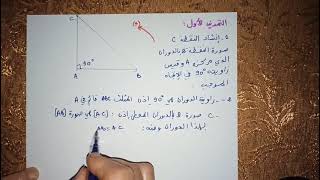 التمرين الأول:
1- إنشاء النقطة C
صورة النقطة B بالدوران
الذي مركزه A وقيس
زاويته 90° في الإتجاه
الموجب
(+)
C
90°
A
B
2- زاوية الدوران هي 90° إذن المثلث ABC قائم في A
C صورة B بالدوران المعطى إذن: [AC] هي صورة [AB]
بهذا الدوران ومنه: AB = AC